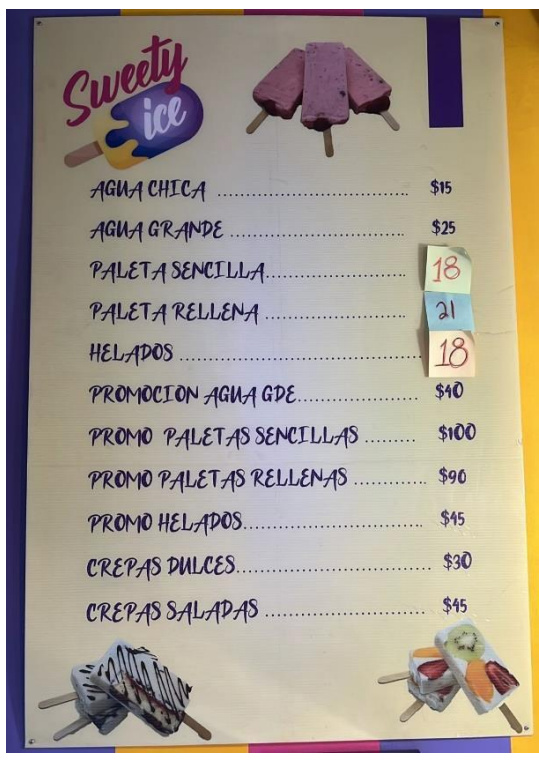 Sweety
ice
AGUA CHICA .................................. $15
AGUA GRANDE .............................. $25
PALETA SENCILLA........................ 18
PALETA RELLENA ........................ 21
HELADOS ......................................... 18
PROMOCION AGUA GDE.................... $40
PROMO PALETAS SENCILLAS ......... $100
PROMO PALETAS RELLENAS ............ $90
PROMO HELADOS.............................. $45
CREPAS DULCES................................. $30
CREPAS SALADAS ........................... $45